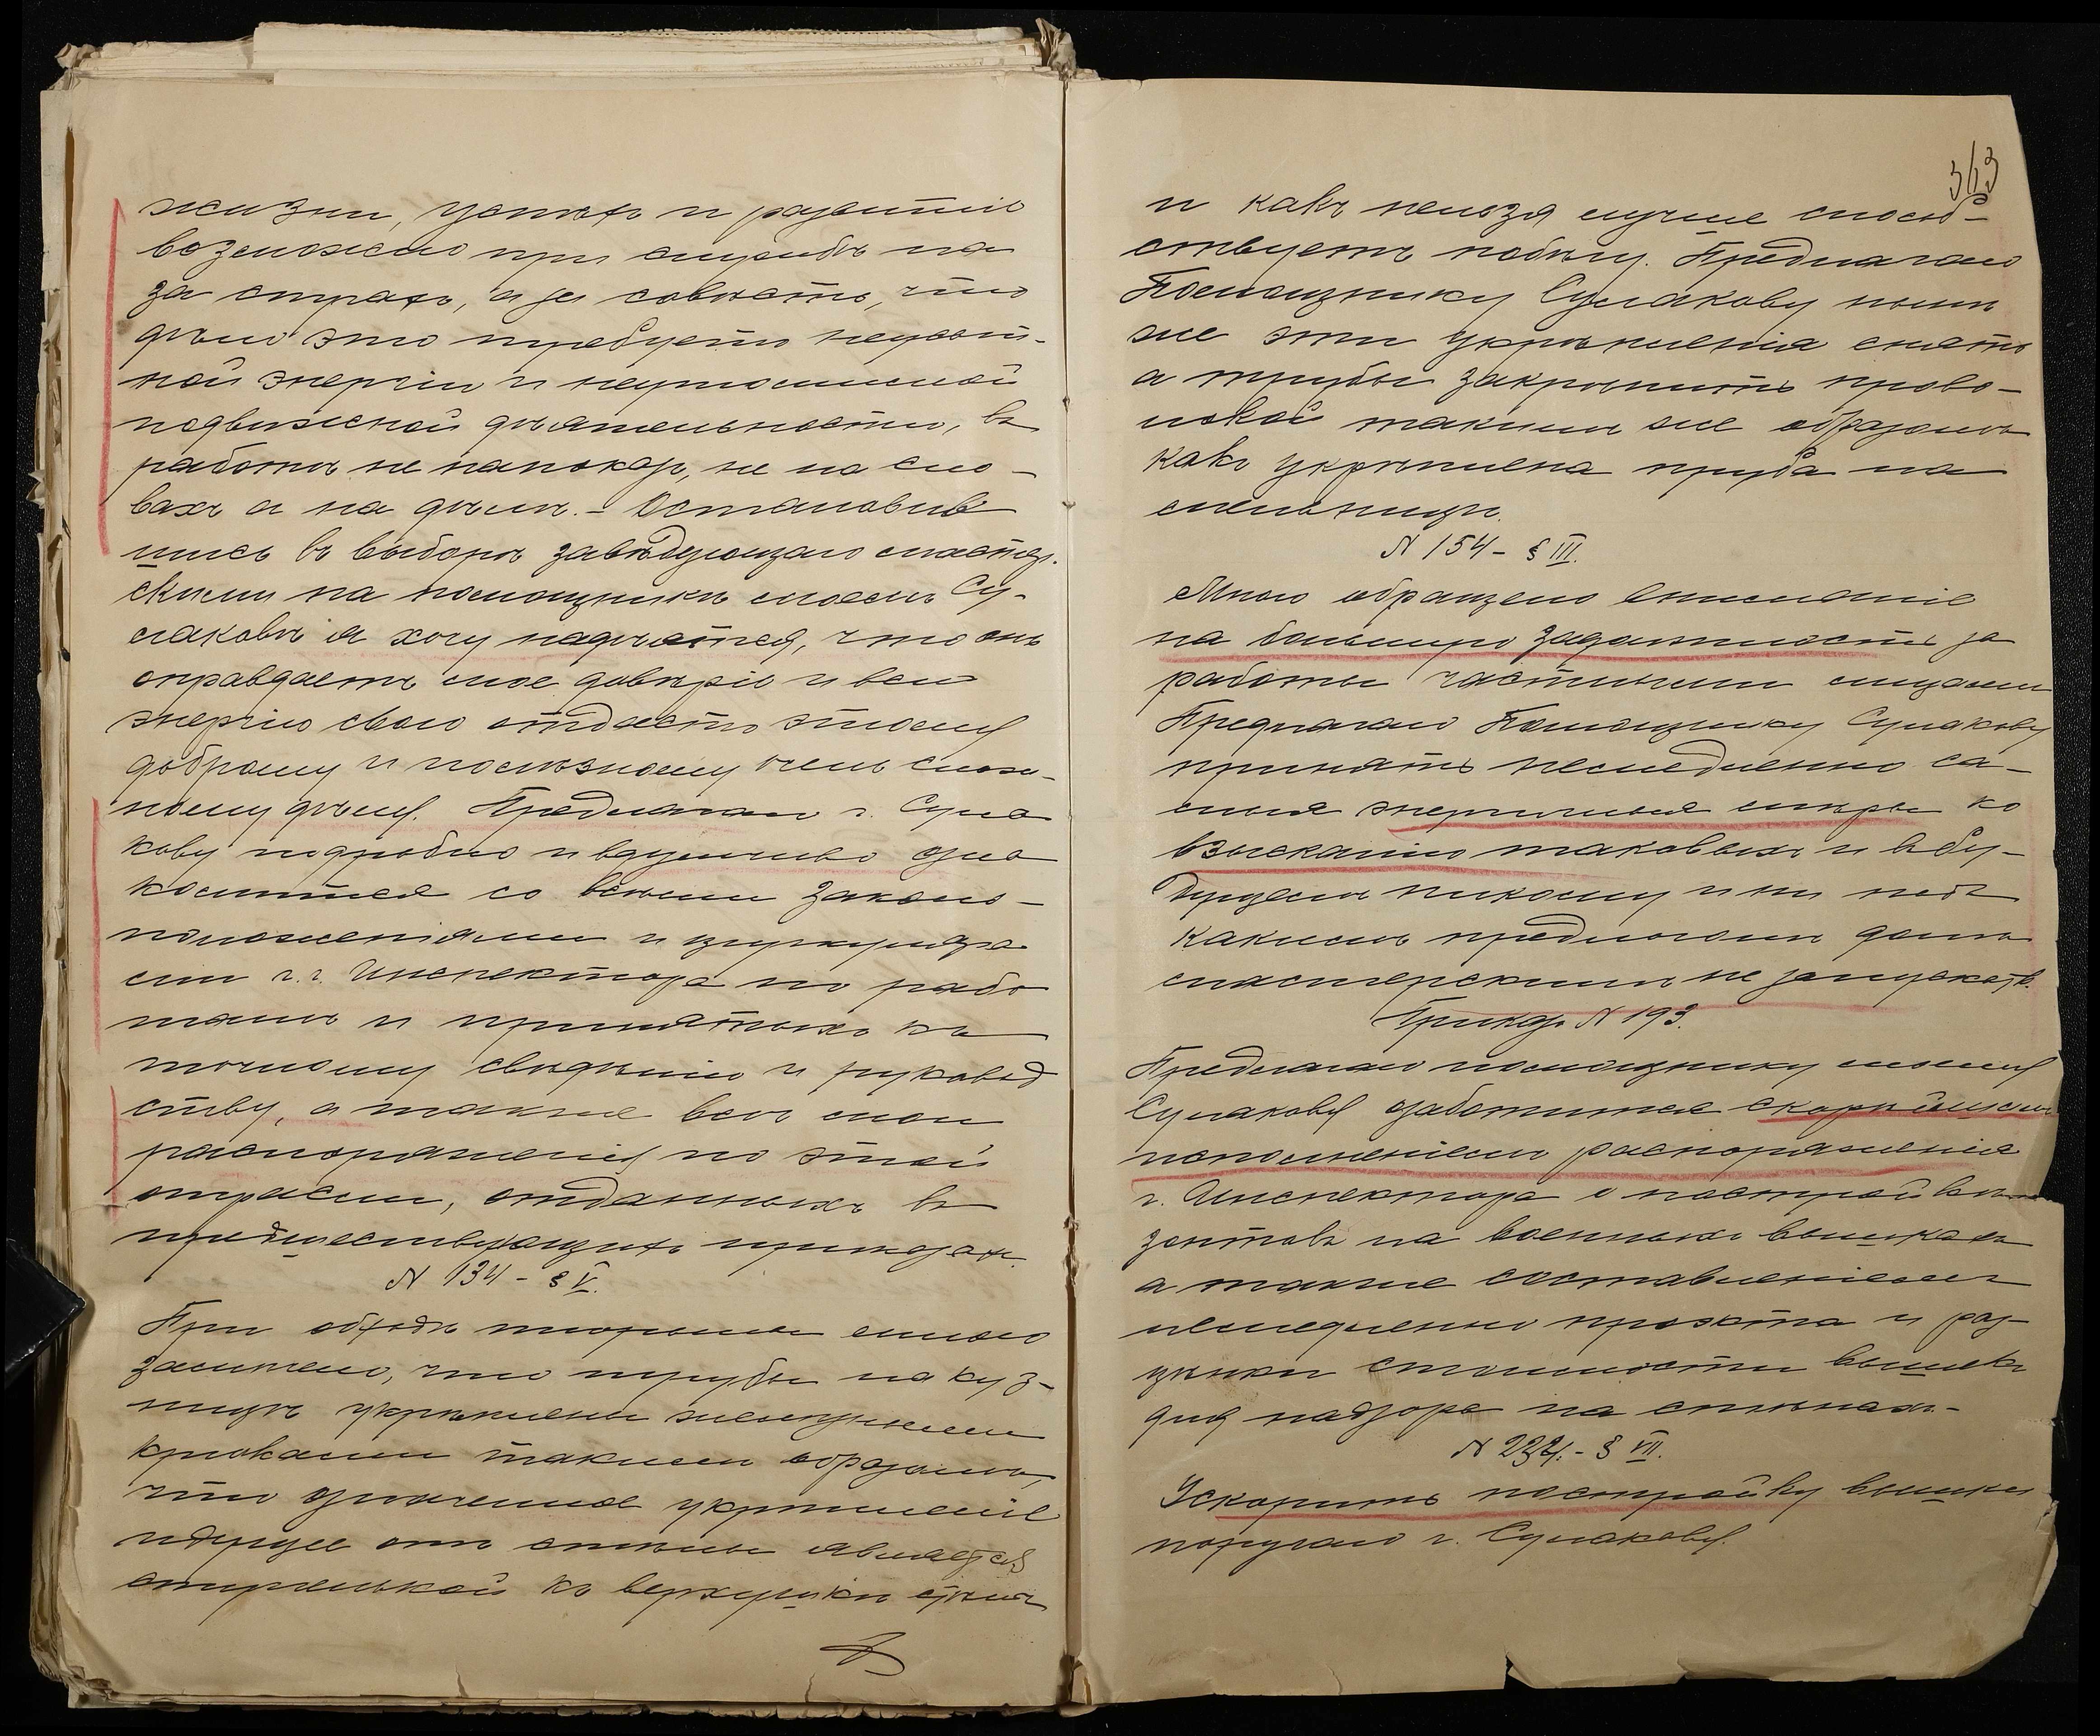 жизни, успѣхъ и развитіе
возможно при службѣ не
за страхъ, а за совѣсть, что
дѣло это требуетъ неуват-
ной энергіи и неутомимой
подвижной дѣятельности, въ
работѣ не напоказъ, не на сло-
вахъ а на дѣлѣ. - Остановив
шись въ выборѣ завѣдующаго мастер.
скими на помощникѣ моемъ Су-
лаковѣ я хочу надѣятся, что онъ
оправдаетъ мое довѣріе и всю
энергію свою отдастъ этому
доброму и полезному очень слож-
ному дѣлу. Предлагаю г. Сула
кову подробно и вдумчиво озна
комится со всѣми законо-
положеніями и циркуляра
ми г.г. Инспектора по рабо
тамъ и принятыхъ къ
точному свѣдѣнію и руковод
ству, а также всѣ мои
распоряженія по этой
отрасли, отданныхъ въ
предшествующихъ приказахъ.
№ 134 - § V.
При обходѣ тюрьмы мною
замѣчено, что трубы на куз-
ницѣ укрѣплены желѣзными
крюками такимъ образомъ,
что означенное укрѣпленіе
идущее отъ стѣны является
ступенькой къ верхушкѣ стѣны
363
и какъ нельзя лучше способ-
ствуетъ побѣгу. Предлагаю
Помощнику Сулакову нынѣ
же эти укрѣпленія снять
а трубы закрѣпить прово-
локой такимъ же образомъ
какъ укрѣплена труба на
мельницѣ.
№ 154 - § III.
Мною обращено вниманіе
на большую задолжность за
работы частными лицами
Предлагаю Помощнику Сулакову
принять немедленно са-
мыя энергичныя мѣры ко
взысканію таковыхъ и въ бу-
дущемъ никому и ни подъ
какимъ предлогомъ долга
мастерскимъ не запускать.
Приказъ № 193.
Предлагаю помощнику моему
Сулакову озаботится скорѣйшимъ
исполненіемъ распоряженія
г. Инспектора о постройкѣ
зонтовъ на военныхъ вышкахъ
а также составленіемъ
немедленно проэкта и рас-
цѣнки стоимости вышекъ
для надзора на стѣнахъ.-
№ 232. - § VII.
Ускорить постройку вышки
поручаю г. Сулакову.